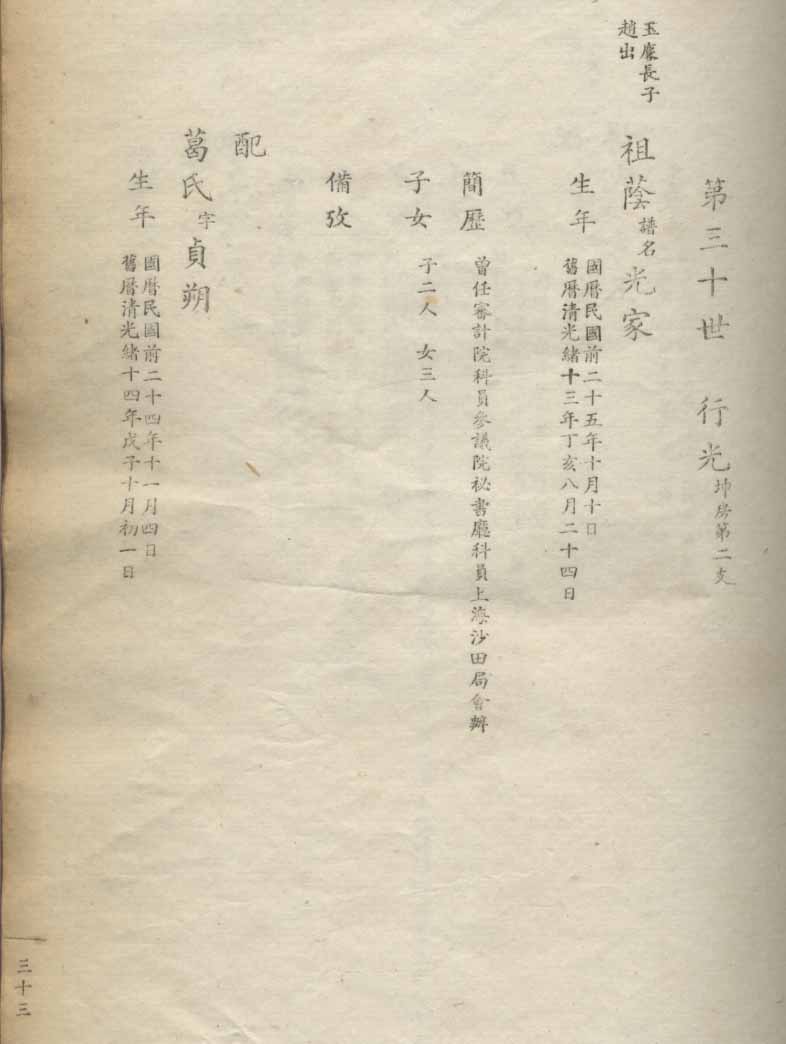 第三十世 行光 坤房第二支
玉麇長子
趙出
祖蔭 譜名 光家
生年
國曆民國前二十五年十月十日
舊曆清光緒十三年丁亥八月二十四日
簡歷 曾任審計院科員參議院秘書廳科員上海沙田局會辦
子女 子二人 女三人
備攷
配
葛氏 字 貞朔
生年
國曆民國前二十四年十一月四日
舊曆清光緒十四年戊子十月初一日
三十三